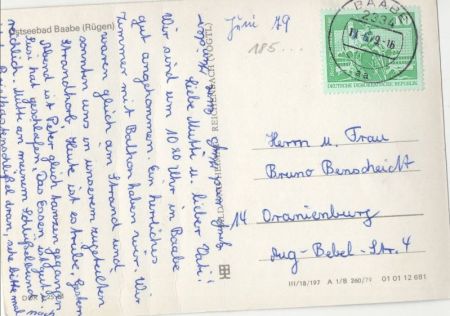 Ostseebad Baabe (Rügen)
Juni 79
185...
BAABE
2334
DEUTSCHE DEMOKRATISCHE REPUBLIK
Liebe Mutti u. lieber Vati!
Wir sind um 10.30 Uhr in Baabe
gut angekommen. Ein herrliches
Zimmer mit Balkon haben wir. Wir
waren gleich am Strand und
sonnten uns in unserem zugeteilten
Strandkorb. Heute ist es trübe. Gestern
Abend ist Peter gleich tanzen gegangen
hat geschlafen. Das Essen
Mutti an meinem Schlüsselbund
dran, sehe bitte mal
Herrn u. Frau
Bruno Benscheidt
14 Oranienburg
Aug-Bebel-Str. 4
III/18/197 A 1/B 260/79 01 01 12 681